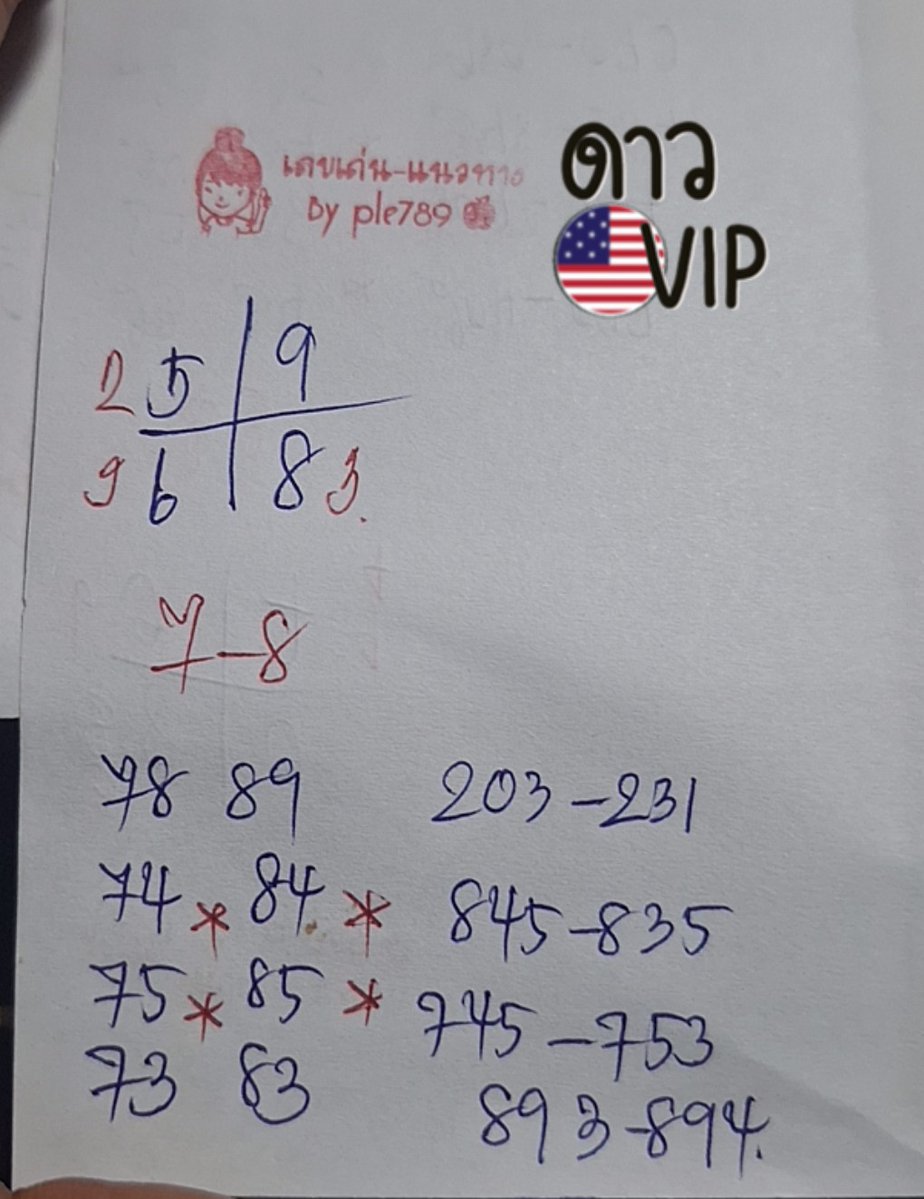 เลขเด่น-แนวทาง
By ple789
ดาว
VIP
2 5 9
9 6 8 3.
7-8
78 89 203-231
74 * 84 * 845-835
75 * 85 * 745-753
73 83 893-894.